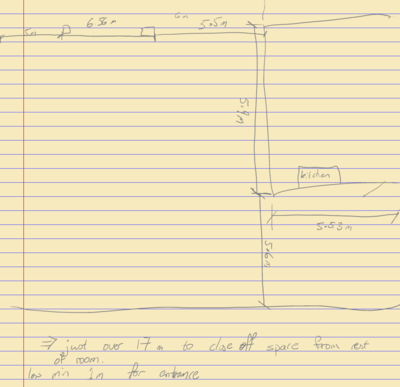 6m
6.56m
5.5m
5m
5.9m
kitchen
5.53m
5.6m
⇒ just over 17m to close off space from rest
of room.
less min 1m for entrance